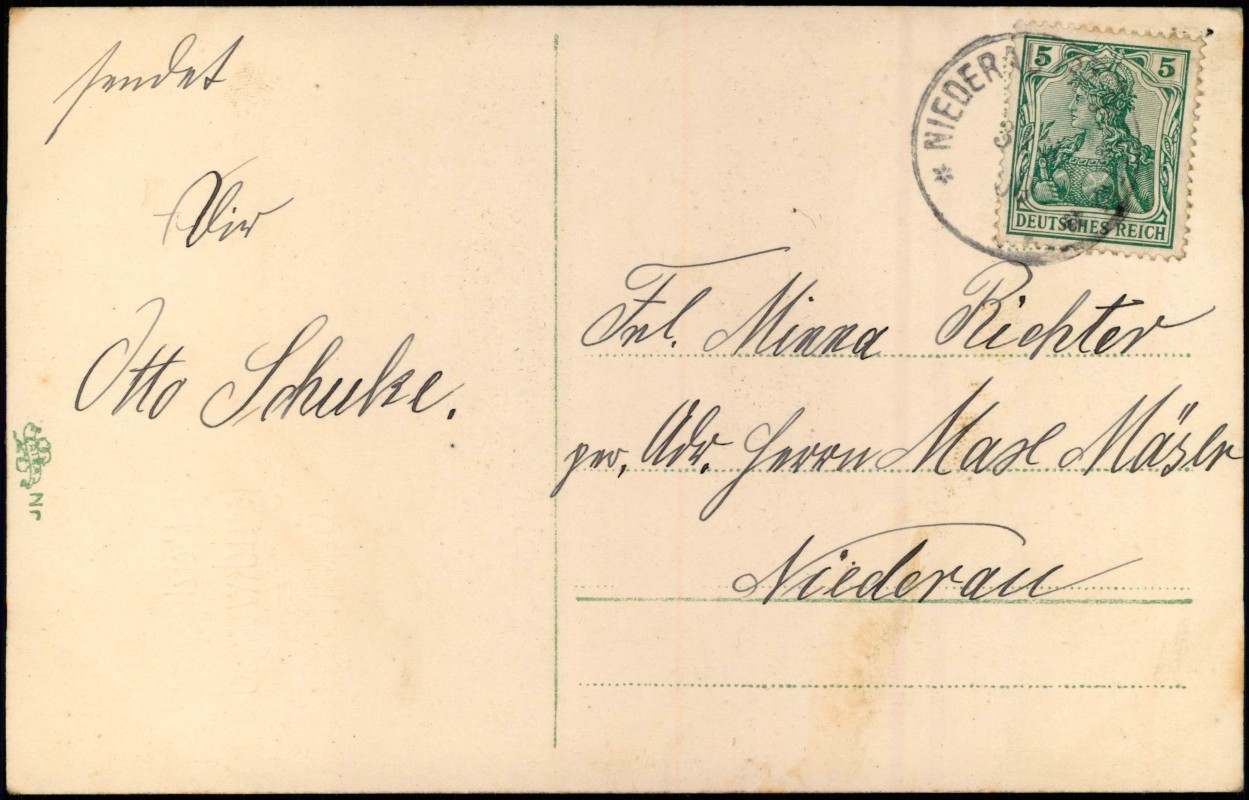 sendet
Dir
Otto Schulze.
Nr
* NIEDERAU
5 5
DEUTSCHES REICH
Frl. Minna Richter
per. Adr. Herrn Max
Niederau